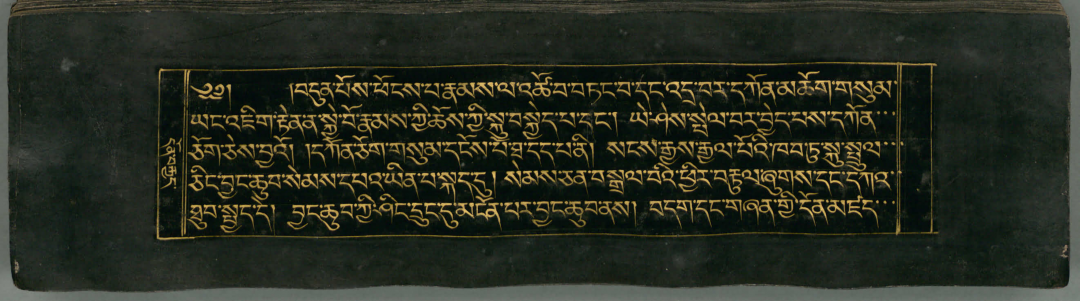 ༄༅། །བདུན་པོས་ཕོངས་པ་རྣམས་ལ་འཚོ་བ་བཏང་བ་དང་འདྲ་བར་དཀོན་མཆོག་གསུམ་
ཡང་འཇིག་རྟེན་ན་སྐྱེ་བོ་རྣམས་ཀྱི་ཆོས་ཀྱི་སྐུ་བསྐྱེད་པ་དང་། ཡེ་ཤེས་སྤེལ་བར་བྱེད་པས་དཀོན་
ཅོག་ཅེས་བྱའོ། །དཀོན་ཅོག་གསུམ་དངོས་པོ་ཐ་དད་པ་ནི། སངས་རྒྱས་རྒྱལ་པོའི་ཁབ་ཏུ་སྐུ་སྤྲུལ་
ཅིང་བྱང་ཆུབ་སེམས་དཔའ་ཡིན་པ་སྐད་དུ། སེམས་ཅན་བསྒྲལ་བའི་ཕྱིར་བརྟུལ་ཞུགས་དང་དཀའ་
ཐུབ་སྤྱད་དེ། བྱང་ཆུབ་ཀྱི་ཤིང་དྲུང་དུ་མངོན་པར་བྱང་ཆུབ་ནས། བདག་དང་གཞན་གྱི་དོན་མཛད་